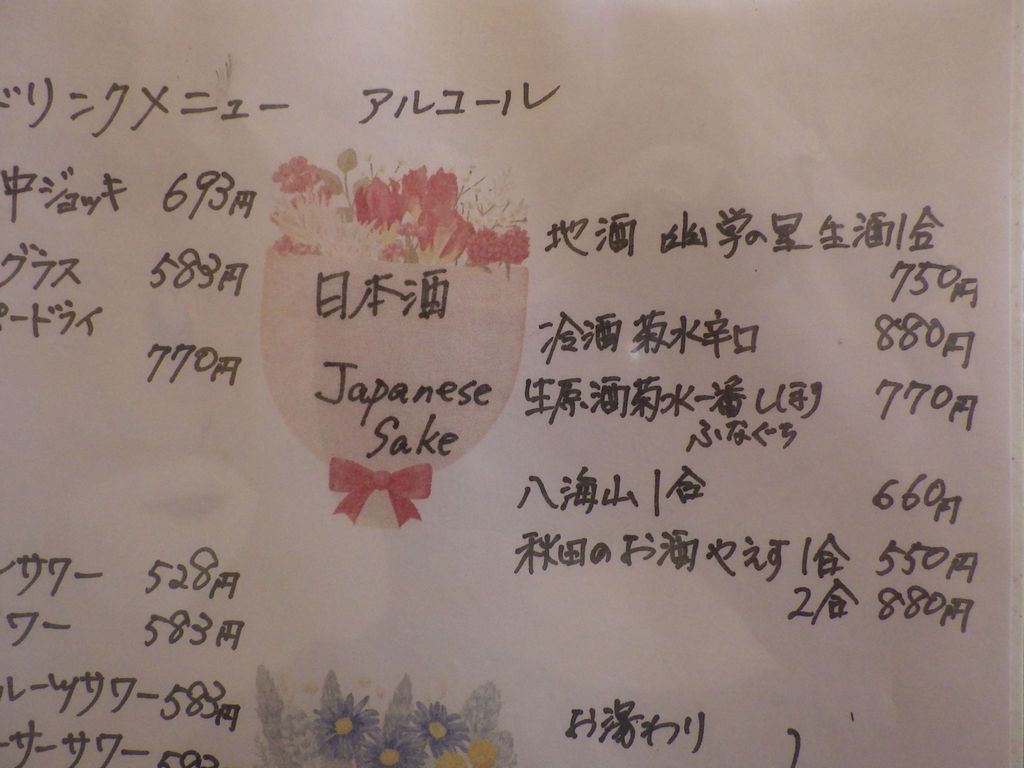 ドリンクメニュー アルコール
中ジョッキ 693円
グラス 583円
ードライ
770円
サワー 528円
ワー 583円
ルーツサワー 583円
ーサーサワー 583
日本酒
Japanese
Sake
地酒 幽学の里 生酒1合
750円
冷酒 菊水辛口 880円
生原酒菊水一番しぼり 770円
ふなぐち
八海山 1合 660円
秋田のお酒 やえす 1合 550円
2合 880円
お湯わり